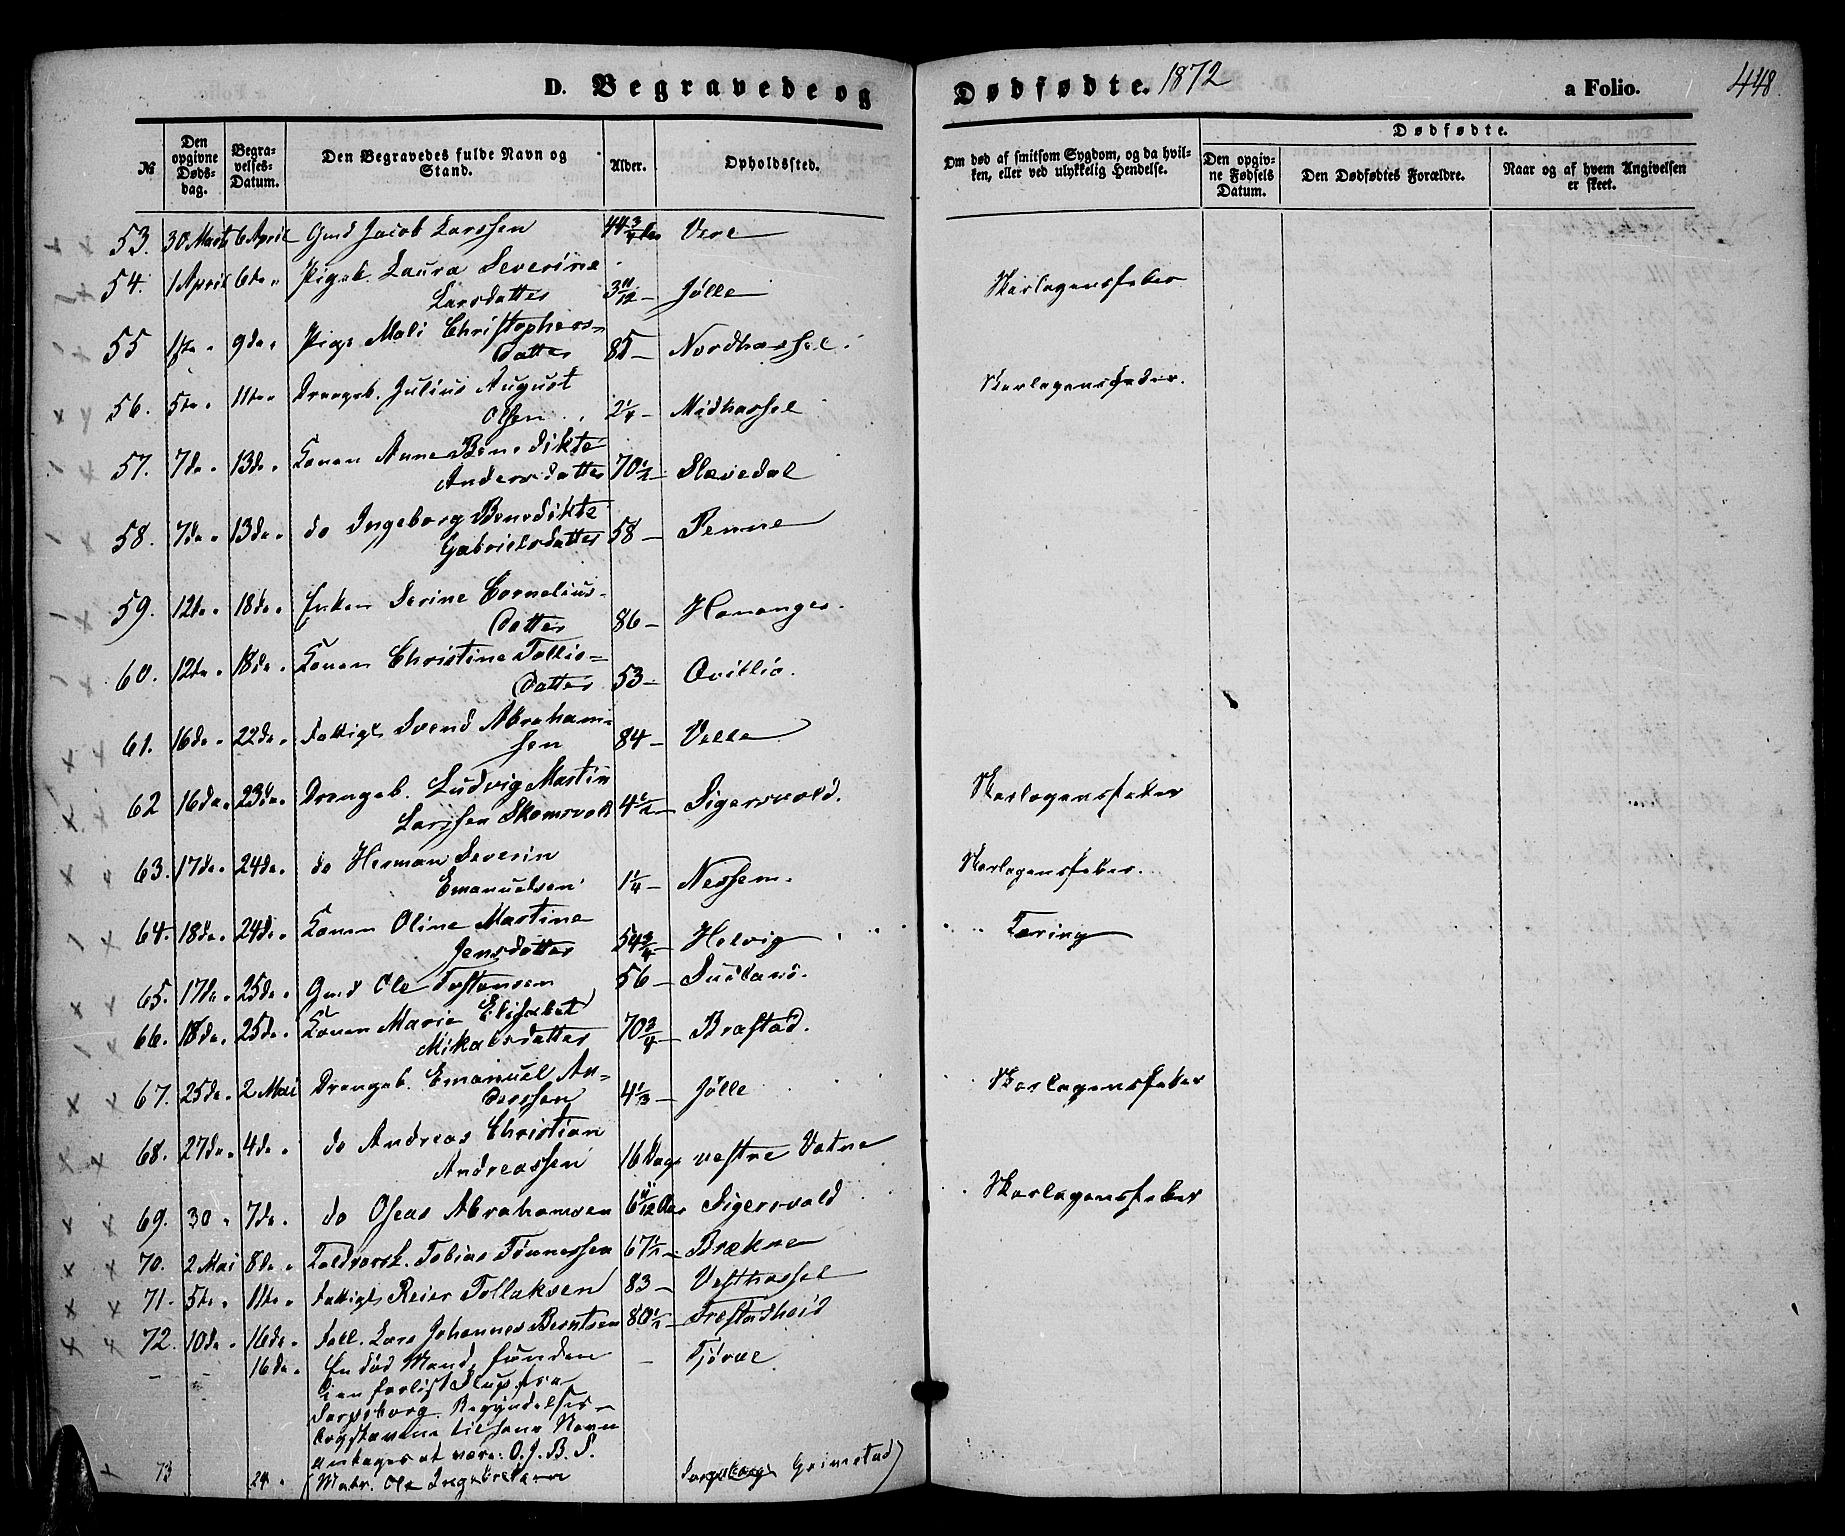 D. Begravede og Dødfødte. 1872 a Folio. 448
№ Den opgivne Dødsdag. Begravelses-Datum. Den Begravedes fulde Navn og Stand. Alder. Opholdssted. Om død af smitsom Sygdom, og da hvilken, eller ved ulykkelig Hendelse. Dødfødte. Den opgivne Fødsels Datum. Den Dødfødtes Forældre. Naar og af hvem Angivelsen er skeet.
53. 30 Marts 6 April Gmd Jacob Larssen 44 3/4 Vere
54. 1 April 6te " Pigeb. Laura Severine
Larsdatter 3 11/12 – Jølle Skarlagensfeber
55 1ste " 9de " Pige Mali Christophers-
datter 85 – Nordhassel.
56. 5te " 11te " Drengeb. Julius August
Olsen 2 1/4 – Midhassel Skarlagensfeber.
57. 7de " 13de " Konen Anne Benedikte
Andersdatter 70 1/2 – Slævedal
58. 7de " 13de " do Ingeborg Benedikte
Gabrielsdatter 58 – Penne
59. 12te " 18de " Enken Serine Cornelius-
datter 86 – Hananger.
60. 12te " 18de " Konen Christine Tollis-
datter 53 – Qvillio.
61. 16de " 22de " Fattigl. Svend Abraham-
sen 84 – Velle
62 16de " 23de " Drengeb. Ludvig Martin
Larssen Skomsvold 4 1/2 – Sigersvold. Skarlagensfeber
63. 17de " 24de " do Herman Severin
Emanuelsen 1 1/4 – Nessem. Skarlagensfeber.
64. 18de " 24de " Konen Oline Martine
Jensdatter 54 3/4 Helvig Tæring
65. 17de " 25de " Gmd Ole Tostensen 56 –
66. 18de " 25de " Konen Marie Elisabet
Mikalsdatter 70 3/4 Brastad.
67. 25de " 2 Mai Drengeb. Emanuel An-
derssen 4 1/3 – Jølle Skarlagensfeber
68. 27de " 4de " do Andreas Christian
Andreassen 16 Dage vestre Vatne
69. 30 " 7de " do Oseas Abrahamsen 6 11/12 Aar Sigersvold Skarlagensfeber
70. 2 Mai 8de " Tobias Tønnessen 67 1/2 – Brækne
71. 5te " 11te " Fattigl. Reier Tollaksen 83 – Vesthassel
72. 10de " 16de " Lars Johannes Berntsen 80 1/2 – Frestadheid
– – 16de " En død Mand, funden – Tjørve
i en forlist Slup fra
Sarpsborg. Begyndelses-
bogstavene til hans Navn
antages at være: O. J. B. S.
73 24 " Matr. Ole Ingebretsen Sarpsborg Grimstad)